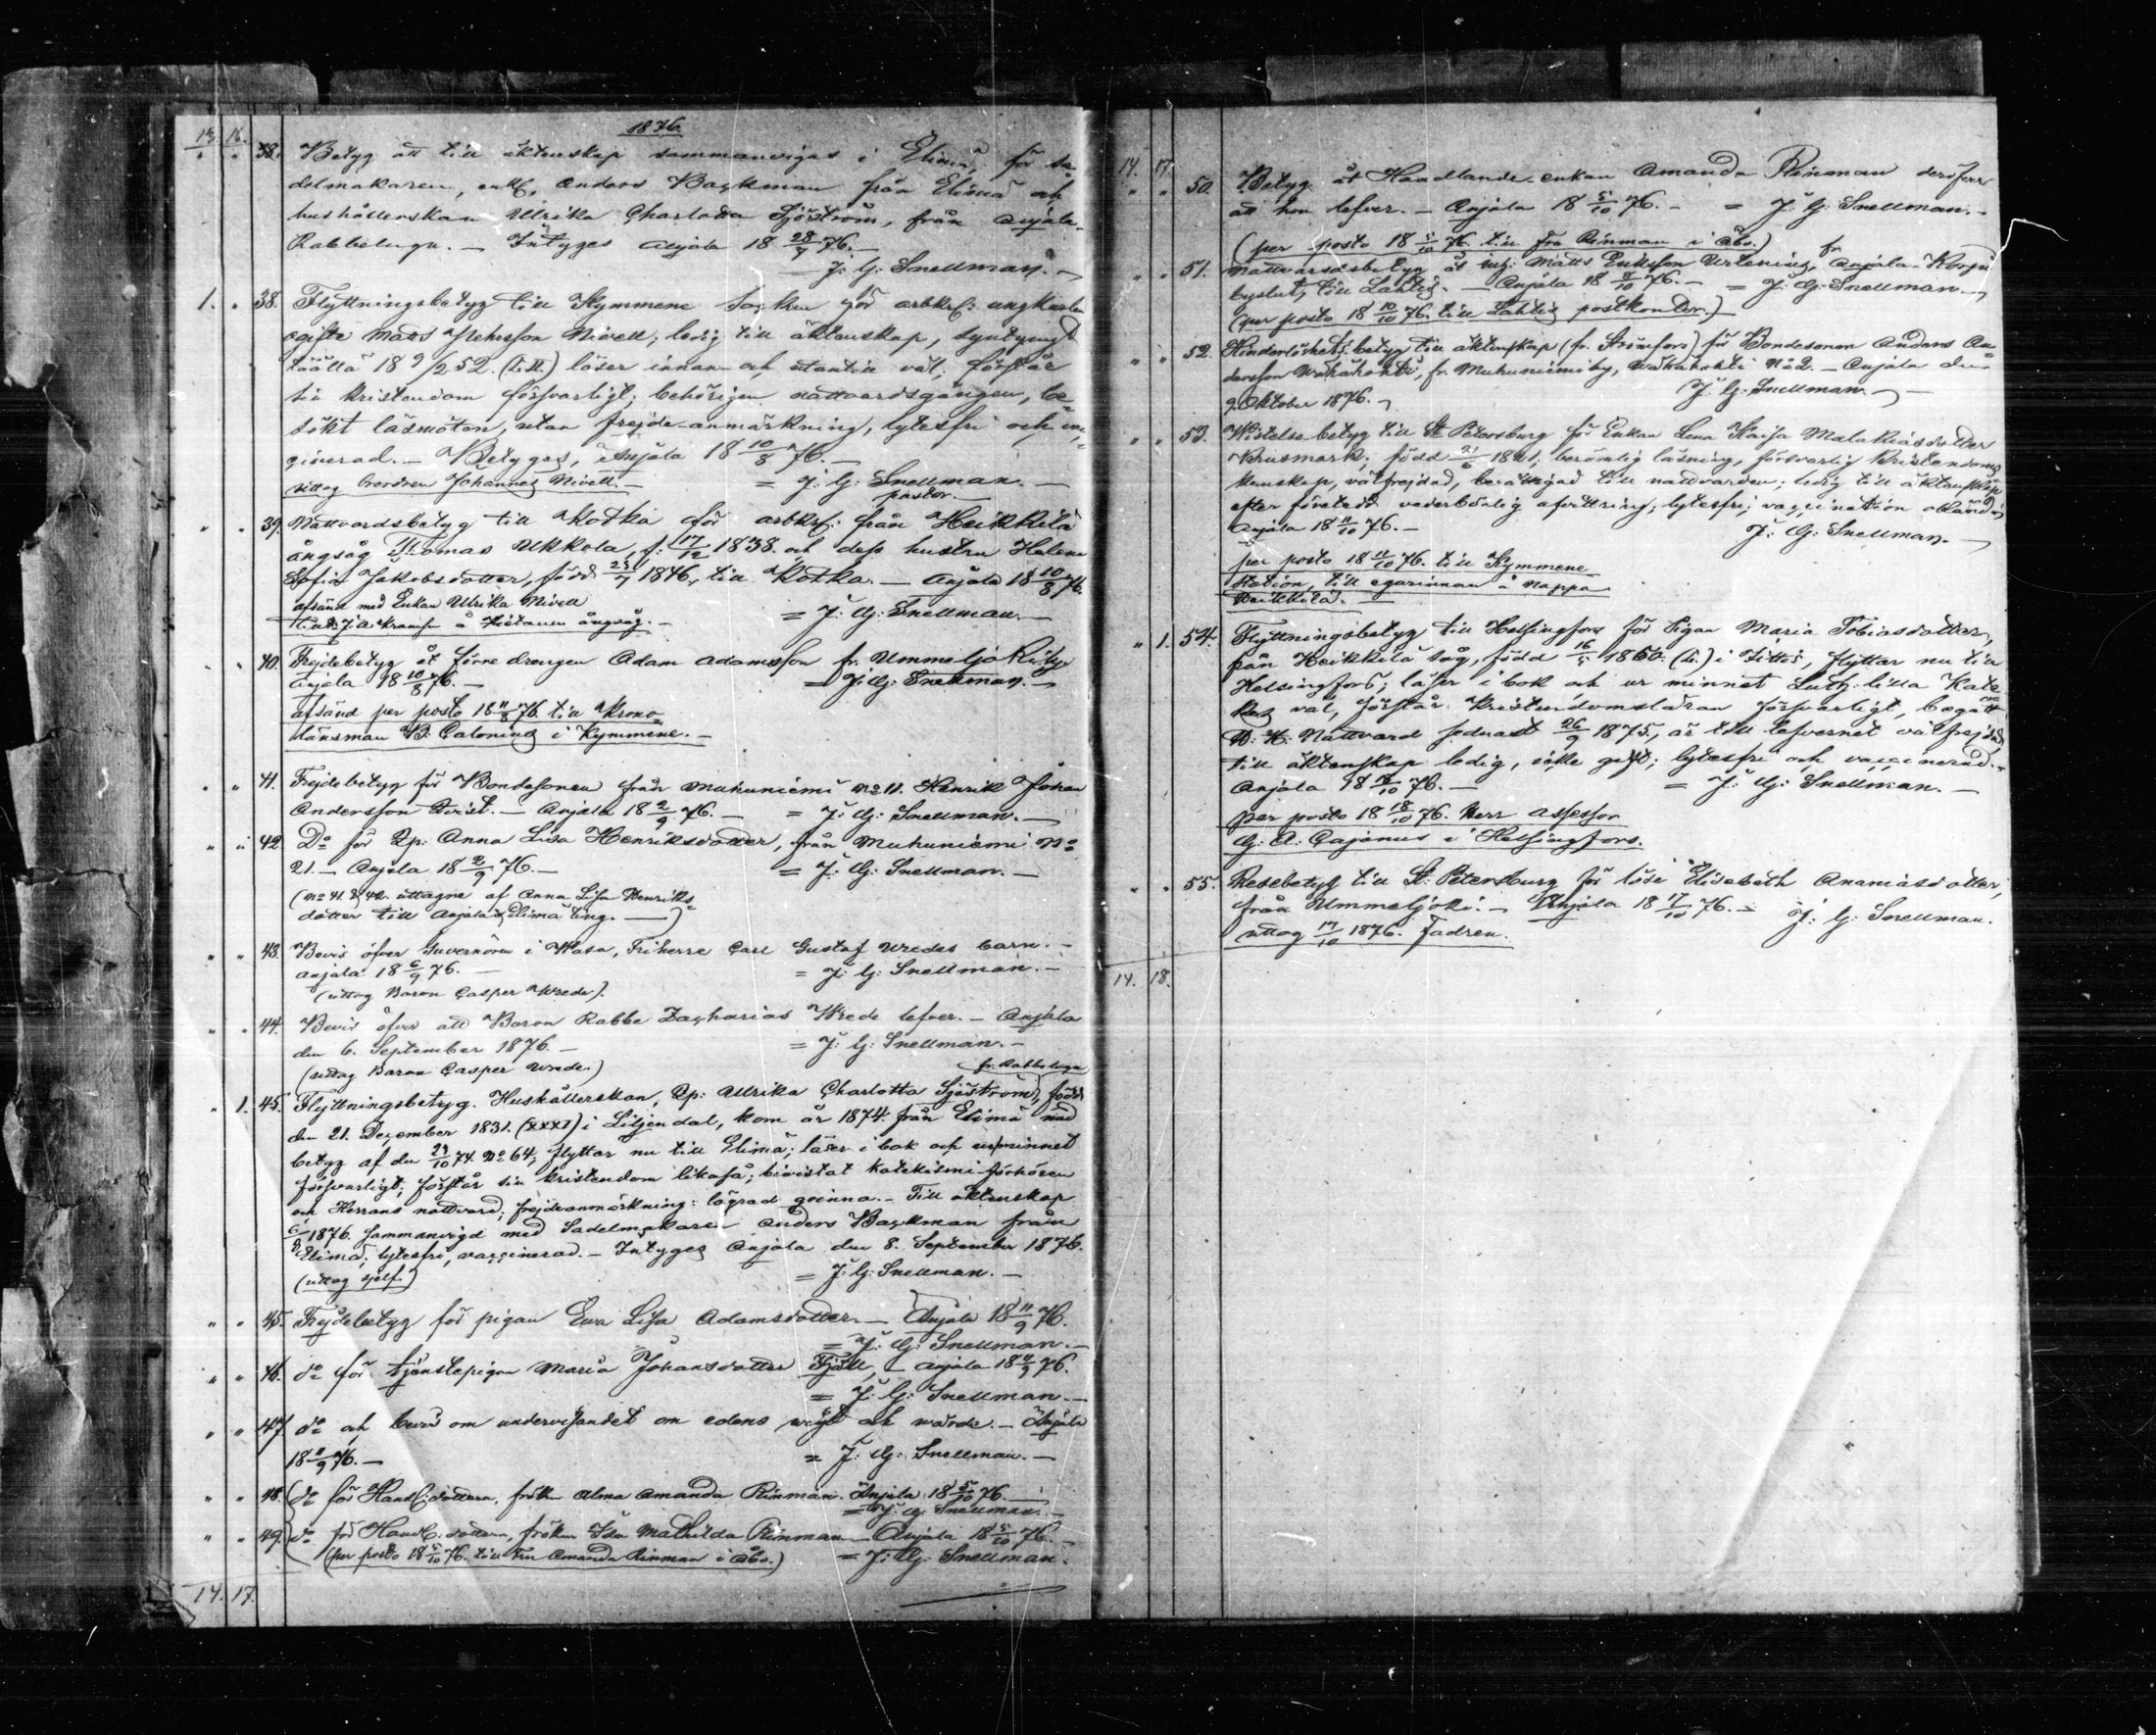 1876.
13. 16.
" " 38. Betyg att till äktenskap sammanvigas i Elimä, för sa-
delmakaren, enkl. Anders Backman från Elimä och
hushållerskan Ulrika Charlotta Sjöström, från Anjala
Rabbelugn. — Intygas Anjala 18 28/7 76. —
J. G: Snellman. —
1. " 38. Flyttningsbetyg till Kymmene Socken för arbkrl: ungkarlen
ogifte Matts Nivell; ledig till äktenskap, syntynyt
täällä 18 9/2 52. (LII.) läser innan- och utantill väl; förstår
sin kristendom försvarligt; behörigen nattvardsgången, be-
sökt läsmöten, utan frejde-anmärkning, lytesfri och vac-
cinerad. — Betygas, Anjala 18 10/8 76. —
uttog brodren Johannes Nivell. — = J. G: Snellman. —
pastor. —
" " 39. Nattvardsbetyg till Kotka för arbkrl: från Heikkilä
ångsåg Thomas Ukkola, f. 17/12 1838. och dess hustru Helena
Sofia Jakobsdotter, född 25/7 1846, till Kotka. — Anjala 18 10/8 76.
afsänd med Enkan Ulrika Nivell
till å Hietanen ångsåg. — = J. G: Snellman. —
" " 40. Frejdebetyg åt förre drengen Adam Adamsson fr. Ummeljoki by.
Anjala 18 10/8 76. — = J. G: Snellman. —
afsänd per posto 18 11/8 76. till Krono-
länsman B. Calonius i Kymmene. —
" " 41. Frejdebetyg för Bondesonen från Muhuniemi No 11. Henrik Johan
Andersson Tvist. — Anjala 18 2/9 76. — = J. G: Snellman. —
" " 42. Do för Qp: Anna Lisa Henriksdotter, från Muhuniemi No
21. — Anjala 18 2/9 76. — = J. G: Snellman. —
(No 41. & 42. uttagne af Anna Lisa Henriks-
dotter till Anjala & Elimä ting. —)
" " 43. Bevis öfver Guvernören i Wasa, Friherre Carl Gustaf Wredes barn. —
Anjala 18 6/9 76. — = J. G: Snellman. —
(uttog Baron Casper Wrede).
" " 44. Bevis öfver att Baron Rabbe Zacharias Wrede lefver. — Anjala
den 6. September 1876. — = J. G: Snellman. —
(uttog Baron Casper Wrede.)
fr. Rabbelugn
" 1. 45. Flyttningsbetyg. Hushållerskan, Qp: Ulrika Charlotta Sjöström, född
den 21. December 1831. (XXXI) i Liljendal, kom år 1874 från Elimä med
betyg af den 24/10 74 No 64; flyttar nu till Elimä; läser i bok och ur minnet
försvarligt; förstår sin kristendom likaså; bivistat katekismi-förhören
och Herrans nattvard; frejdeanmärkning: lägrad qvinna. — Till äktenskap
6/8 1876. sammanvigd med Sadelmakaren Anders Backman från
Elimä; lytesfri, vaccinerad. — Intygas Anjala den 8. September 1876.
(uttog sjelf.) = J. G: Snellman. —
" " 45. Frejdebetyg för pigan Ewa Lisa Adamsdotter. — Anjala 18 11/9 76.
= J. G: Snellman. —
" " 46. do för tjenstepigan Maria Johansdotter Fjäll, — Anjala 18 11/9 76.
= J. G: Snellman. —
" " 47. do och bevis om undervisandet om edens vigt och värde. — Anjala
18 11/9 76. — = J. G: Snellman. —
" " 48. do för Handl: dottern, fröken Alma Amanda Rinman. Anjala 18 5/10 76. —
= J. G: Snellman. —
" " 49. do för Handl: dottern, fröken Ida Mathilda Rinman — Anjala 18 5/10 76. —
(per posto 18 5/10 76. till Fru Amanda Rinman i Åbo.) = J. G: Snellman.
14. 17.
14. 17.
" " 50. Betyg åt Handlande-enkan Amanda Rinman deröfver
att hon lefver. — Anjala 18 5/10 76. — = J. G: Snellman. —
(per posto 18 5/10 76. till Fru Rinman i Åbo.)
" " 51. Nattvardsbetyg åt Matts Eriksson Urtenius, fr. Anjala-Korpi
till Lahtis. — Anjala 18 76. — = J. G: Snellman. —
(per posto 18 10/10 76. till Lahtis postkontor.)
" " 52. Hinderlöshets-betyg till äktenskap (fr. Strömfors) för Bondesonen Anders An-
dersson Wäkkähonti, fr. Muhuniemi by, No 2. — Anjala den
9. Oktober 1876. — J. G: Snellman. —
" " 53. Wistelse betyg till St Petersburg för Enkan Lena Kaisa Malakiasdotter
född 1821; berömlig läsning, försvarlig kristendoms
kunskap, välfrejdad, berättigad till nattvarden; ledig till äktenskap
efter företedd vederbörlig afvittring; lytesfri; vaccination obekant
Anjala 18 11/10 76. — J. G: Snellman. —
per posto 18 11/10 76. till Kymmene
Station, till egarinnan å Nappa
Heikkilä. —
" 1. 54. Flyttningsbetyg till Helsingfors för Pigan Maria Tobiasdotter,
från Heikkilä såg, född 16/5 i Itis, flyttar nu till
Helsingfors; läser i bok och ur minnet Luth: lilla Kate-
kes väl, förstår Kristendomsläran försvarligt, begått
H. H. Nattvard sednast 26/9 1875, är till lefvernet välfrejdad
till äktenskap ledig, icke gift; lytesfri och vaccinerad. —
Anjala 18 76. — = J. G: Snellman. —
per posto 18 18/10 76. Herr Assessor
G. A: Cajanus i Helsingfors.
" " 55. Resebetyg till St: Petersburg för lösa Elisabeth Ananiasdotter,
från Ummeljoki. — Anjala 18 17/10 76. — J. G: Snellman.
uttog 17/10 1876. Fadren.
14. 18.